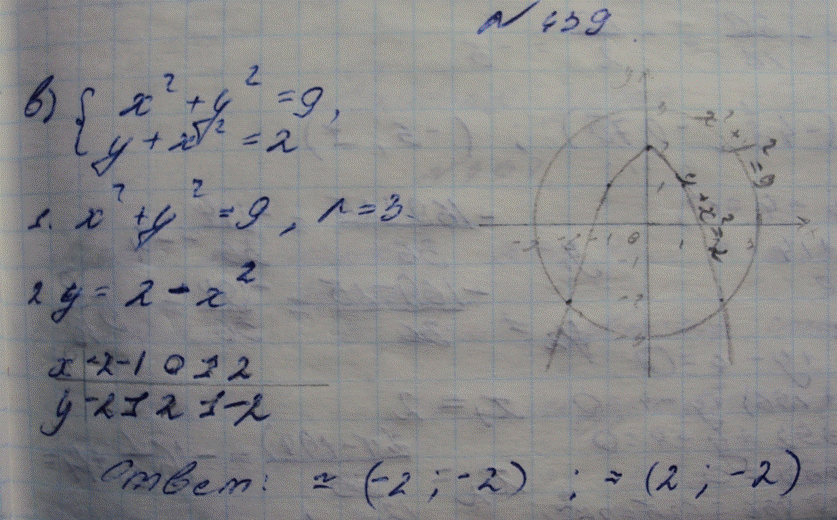 N 439
в) { x² + y² = 9,
y + x² = 2
1. x² + y² = 9, r = 3.
2 y = 2 - x²
x -2 -1 0 1 2
y -2 1 2 1 -2
Ответ: ≈ (-2 ; -2) ; ≈ (2 ; -2)
y
x² + y² = 9
y + x² = 2